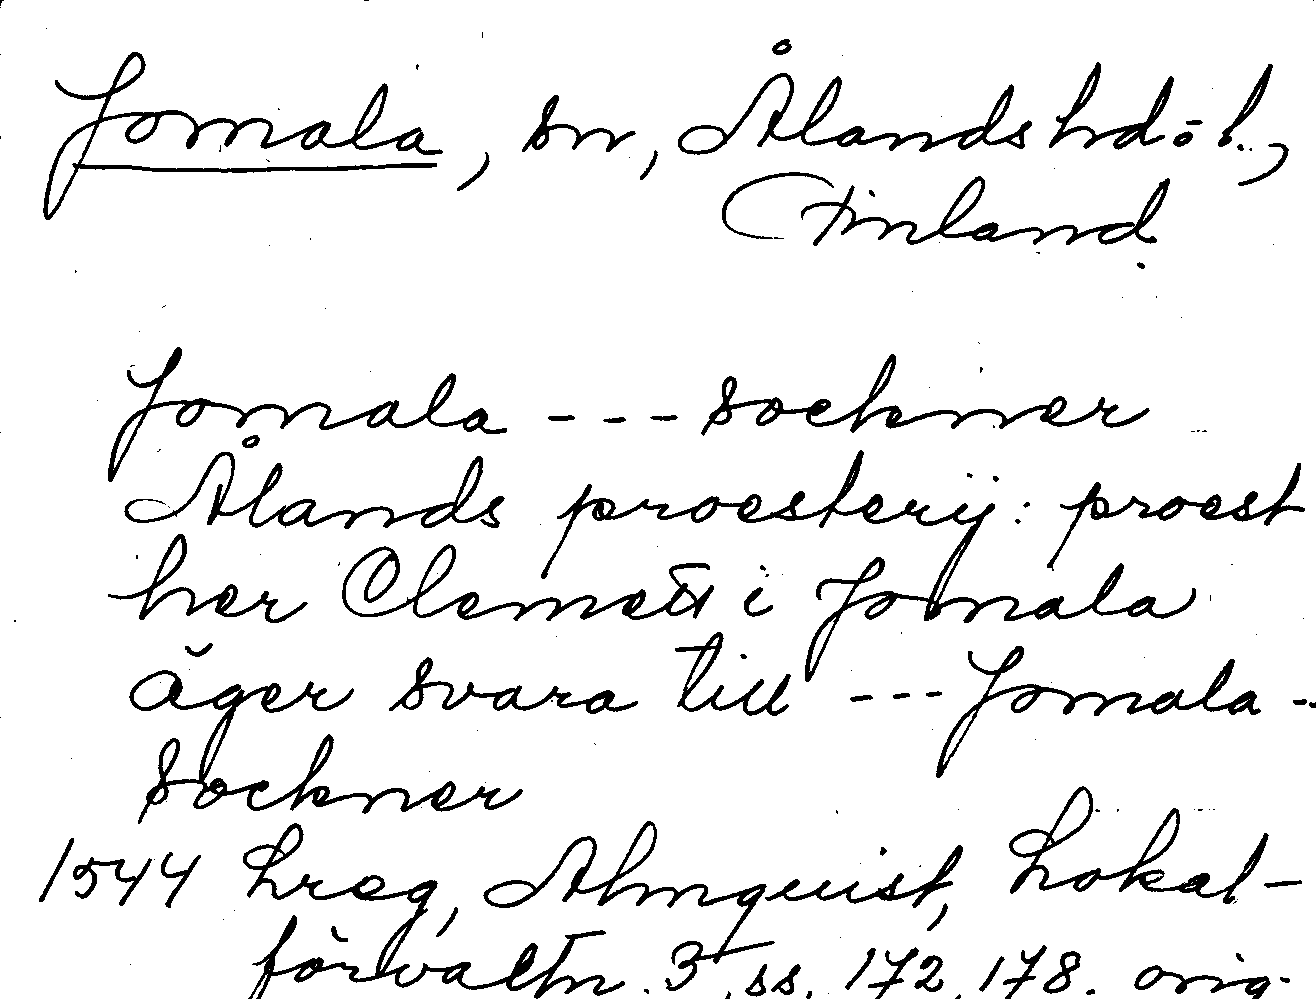 Jomala, sn, Ålands hd o. l.,
Finland.
Jomala --- sockner
Ålands proesterij: proest
her Clemett i Jomala
äger svara till --- Jomala -
sockner
1544 hreg, Almquist, Lokal-
förvaltn. 3, ss. 172, 178. orig.